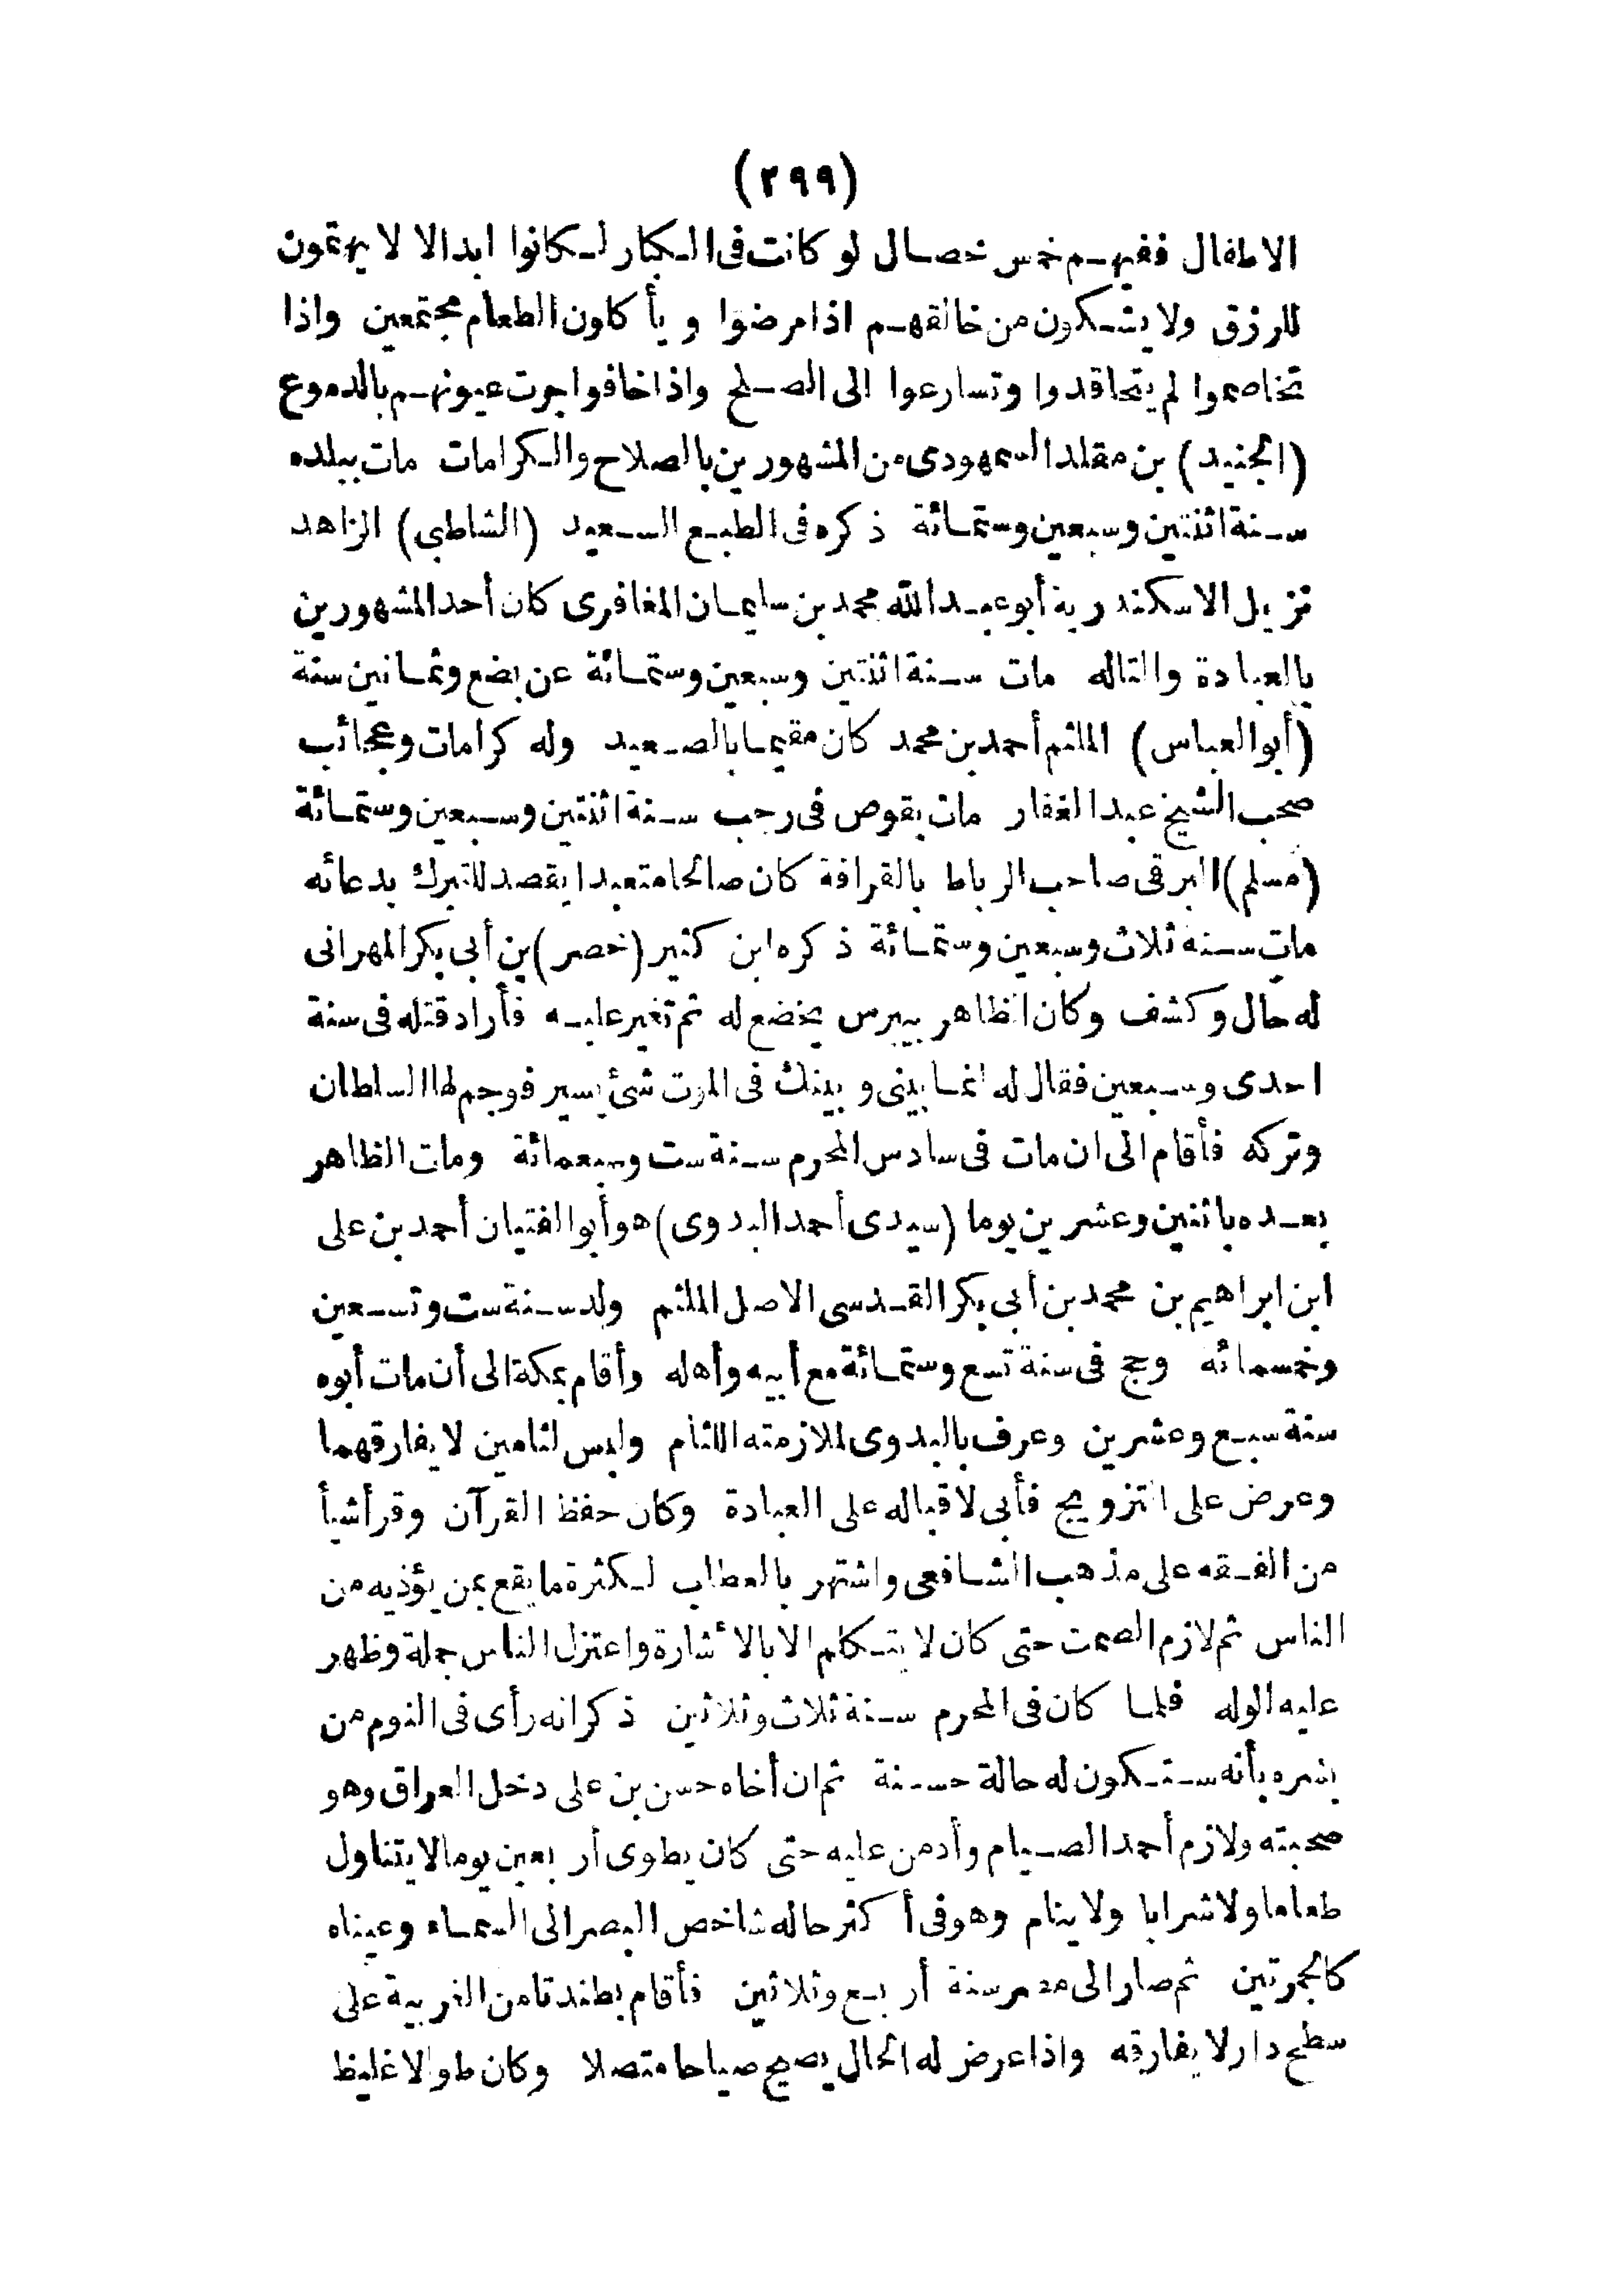 (٢٩٩)
الاطفال ففيهم خمس خصال لو كانت فى الكبار لكانوا ابدالا لا يهتمون
للرزق ولا يشكون من خالقهم اذا مرضوا و يأكلون الطعام مجتمعين واذا
تخاصموا لم يتحاقدوا وتسارعوا الى الصلح واذا خافوا جرت عيونهم بالدموع
(الجنيد) بن مقلد السمهودى من المشهورين بالصلاح والكرامات مات ببلده
سنة اثنتين وسبعين وستمائة ذكره فى الطبع السعيد (الشاطبى) الزاهد
نزيل الاسكندرية أبو عبد الله محمد بن سليمان المغافرى كان أحد المشهورين
بالعبادة والتاله مات سنة اثنتين وسبعين وستمائة عن بضع وثمانين سنة
(أبو العباس) الملثم أحمد بن محمد كان مقيما بالصعيد وله كرامات وعجائب
صحب الشيخ عبد الغفار مات بقوص فى رجب سنة اثنتين وسبعين وستمائة
(مسلم) البرقى صاحب الرباط بالقرافة كان صالحا متعبدا يقصد للتبرك بدعائه
مات سنة ثلاث وسبعين وستمائة ذكره ابن كثير (خضر) بن أبى بكر المهرانى
له حال وكشف وكان الظاهر بيبرس يخضع له ثم تغير عليه فأراد قتله فى سنة
احدى وسبعين فقال له انما بينى و بينك فى الموت شئ يسير فوجم لها السلطان
وتركه فأقام الى ان مات فى سادس المحرم سنة ست وسبعمائة ومات الظاهر
بعده باثنين وعشرين يوما (سيدى أحمد البدوى) هو أبو الفتيان أحمد بن على
ابن ابراهيم بن محمد بن أبى بكر القدسى الاصل الملثم ولد سنة ست وتسعين
وخمسمائه وحج فى سنة تسع وستمائة مع أبيه وأهله وأقام بمكة الى أن مات أبوه
سنة سبع وعشرين وعرف بالبدوى لملازمته اللثام ولبس لثامين لا يفارقهما
وعرض على التزويج فأبى لاقباله على العبادة وكان حفظ القرآن وقرأ شيأ
من الفقه على مذهب الشافعى واشتهر بالعطاب لكثرة ما يقع بمن يؤذيه من
الناس ثم لازم الصمت حتى كان لا يتكلم الا بالاشارة واعتزل الناس جملة وظهر
عليه الوله فلما كان فى المحرم سنة ثلاث وثلاثين ذكر انه رأى فى النوم من
بشره بأنه ستكون له حالة حسنة ثم ان أخاه حسن بن على دخل العراق وهو
صحبته ولازم أحمد الصيام وأدمن عليه حتى كان يطوى أربعين يوما لا يتناول
طعاما ولا شرابا ولا ينام وهو فى أكثر حاله شاخص البصر الى السماء وعيناه
كالجمرتين ثم صار الى مصر سنة أربع وثلاثين فأقام بطندتا من الغربية على
سطح دار لا يفارقه واذا عرض له الحال يصيح صياحا متصلا وكان طوالا غليظ